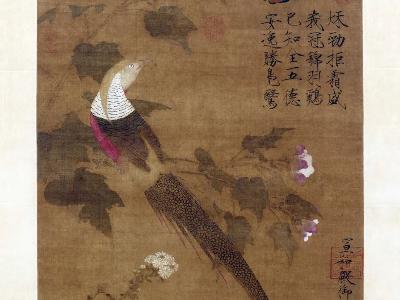 秋勁拒霜盛
峩冠錦羽鷄
已知全五德
安逸勝鳧鷖
宣和殿御